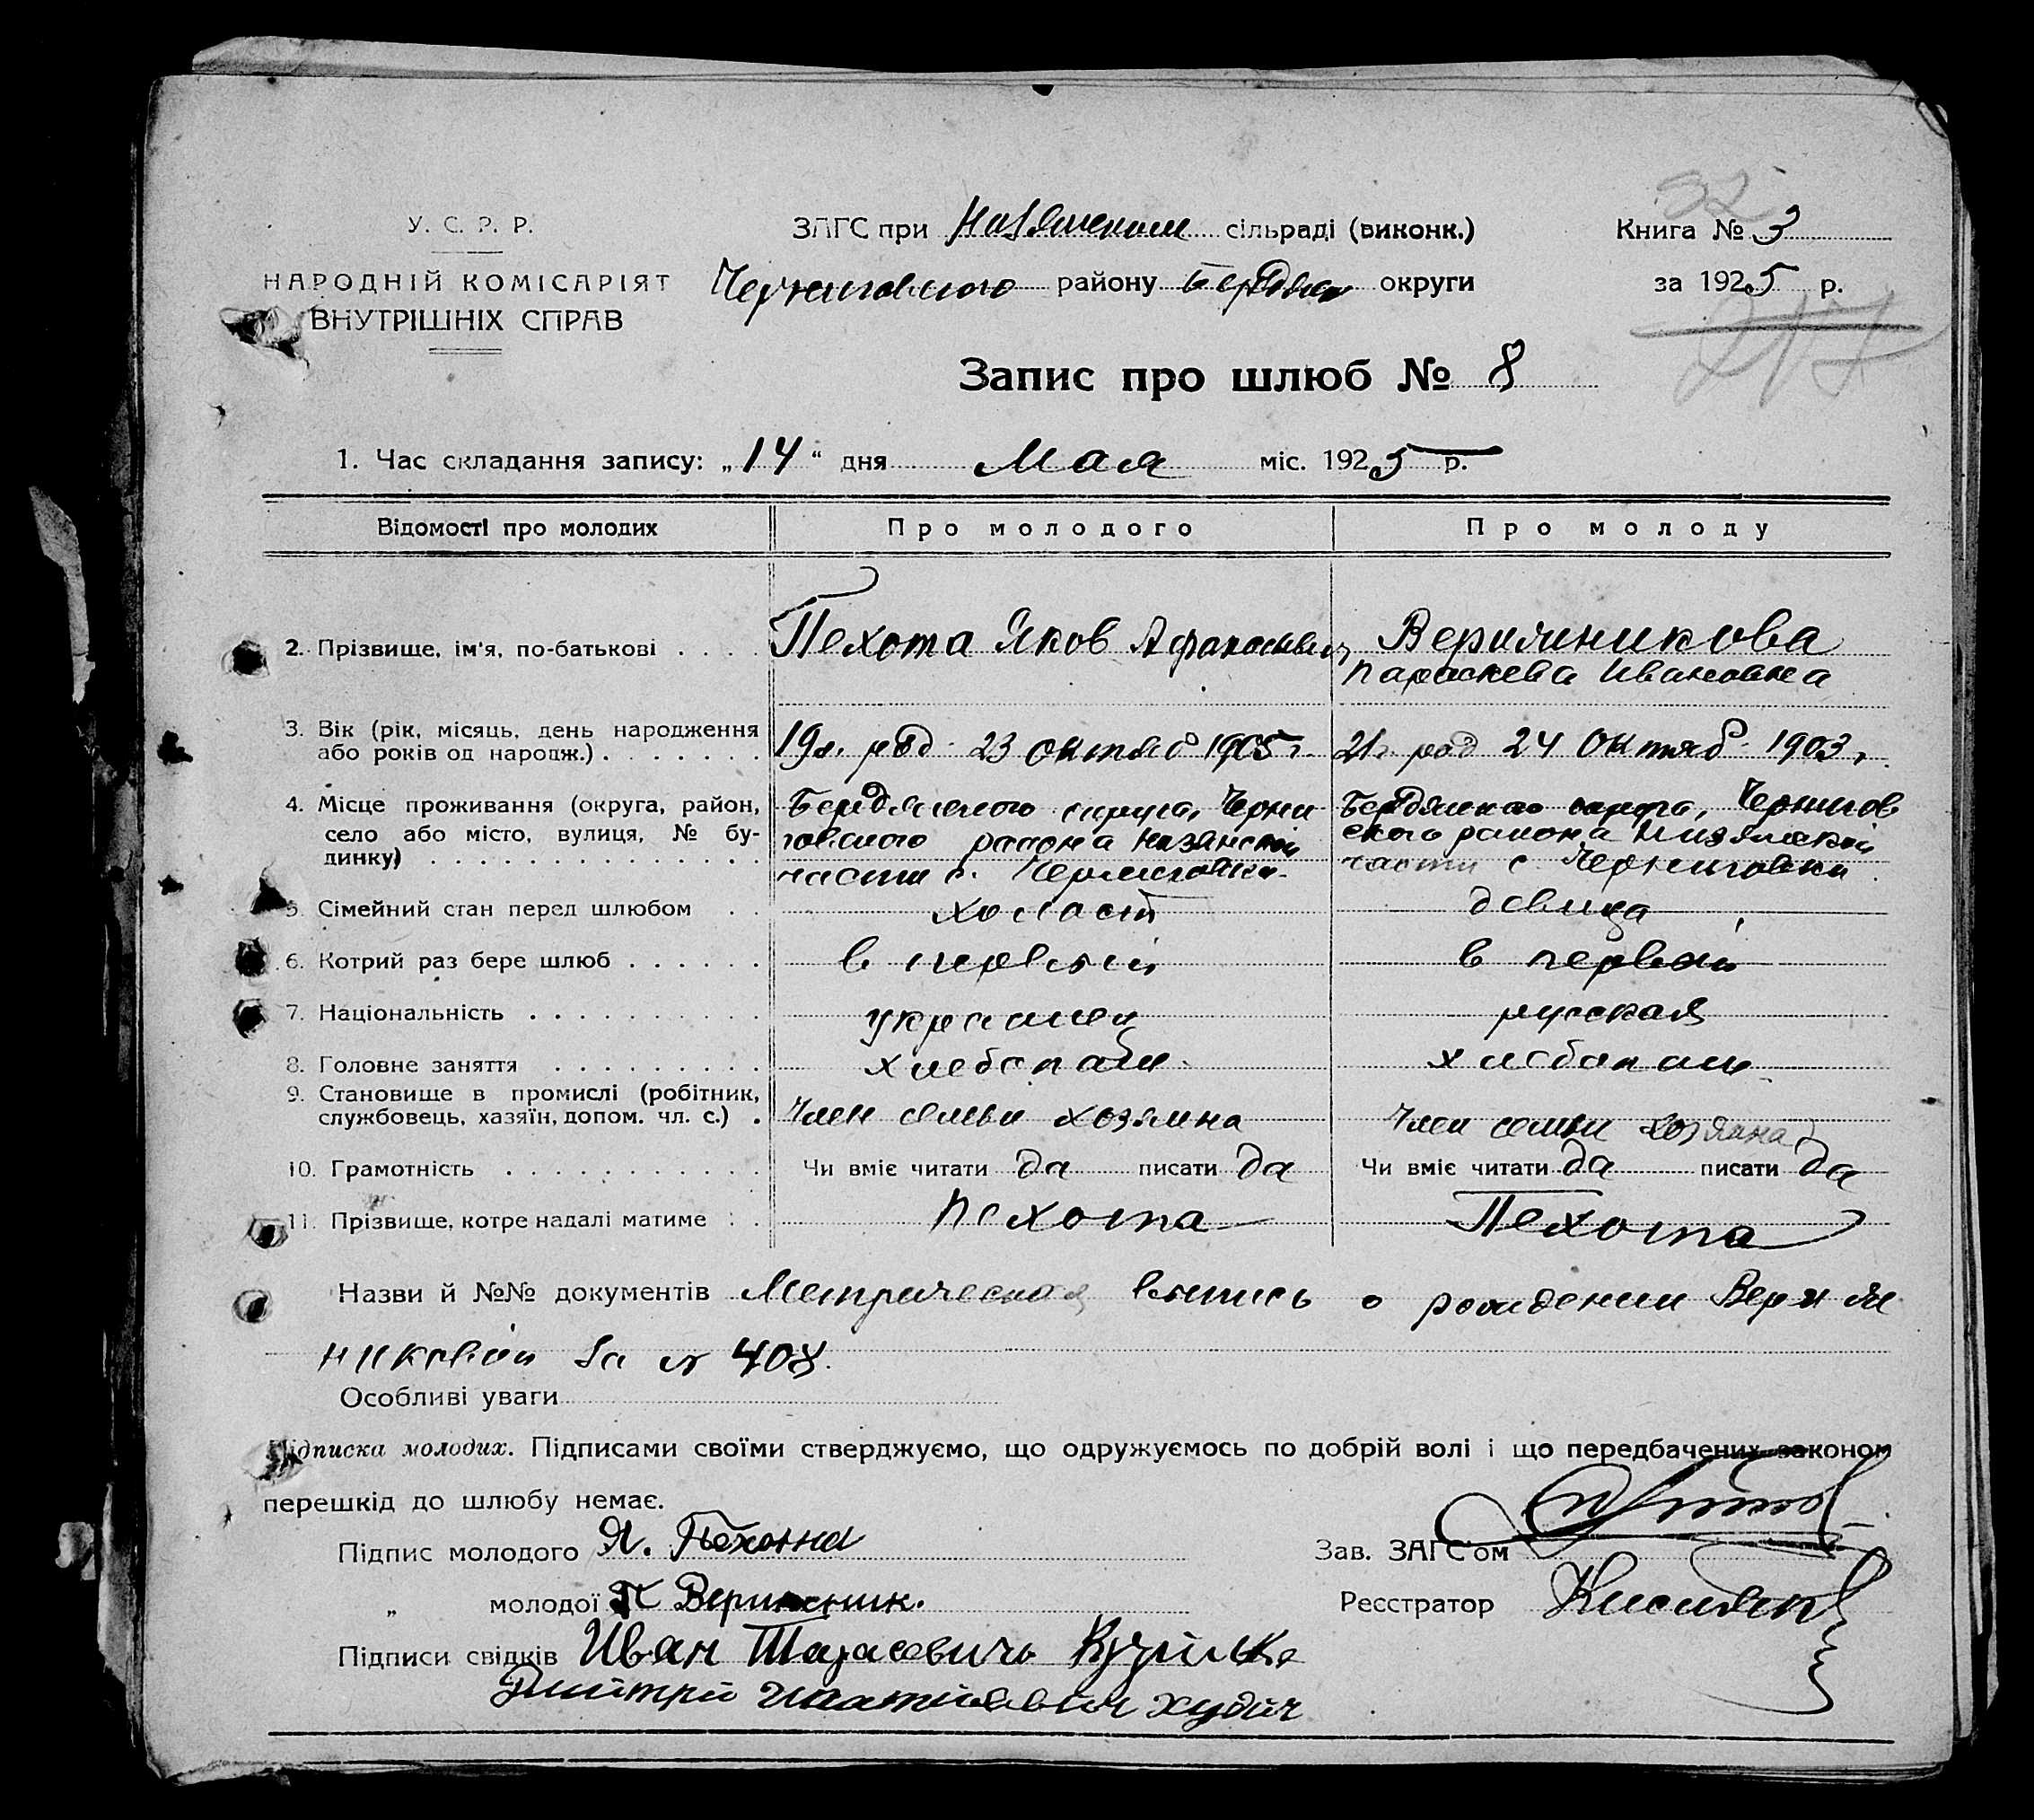 У. С. Р. Р.
НАРОДНІЙ КОМІСАРІЯТ
ВНУТРІШНІХ СПРАВ
ЗАГС при сільраді (виконк.)
Черниговского району Бердян округи
Книга № 3
за 1925 р.
32
217
Запис про шлюб № 8
1. Час складання запису: „14“ дня Мая міс. 1925 р.
Відомості про молодих Про молодого Про молоду
2. Прізвище, ім'я, по-батькові . . . . Пехота Яков Афанасьев Веримникова
Параскева Ивановна
3. Вік (рік, місяць, день народження
або років од народж.) . . . . . . . 19л. род 23 октяб 1905 г. 21 г. род 24 Октяб 1903 г.
4. Місце проживання (округа, район, Бердянского округа, Черни Бердянского округа, Чернигов
село або місто, вулиця, № бу- говского района ского района
динку) . . . . . . . . . . . . . . части с. Черниговки части с Черниговки
5. Сімейний стан перед шлюбом . . холост девица
6. Котрий раз бере шлюб . . . . . . в первый в первый
7. Національність . . . . . . . . . . украинец русская
8. Головне заняття . . . . . . . . . хлебопаш. хлебопаш
9. Становище в промислі (робітник,
службовець, хазяїн, допом. чл. с.) . Член семьи хозяина Член семьи хозяина
10. Грамотність . . . . . . . . . . . Чи вміє читати да писати да Чи вміє читати да писати да
11. Прізвище, котре надалі матиме . . Пехота Пехота
Назви й №№ документів Метрическая выпись о рождении Верим
никовой за № 408.
Особливі уваги
Підписка молодих. Підписами своїми стверджуємо, що одружуємось по добрій волі і що передбачених законом
перешкід до шлюбу немає.
Підпис молодого Я. Пехота
Зав. ЗАГС'ом
„ молодої П Веримник.
Реєстратор
Підписи свідків Иван Тарасевичь
Дмитрий